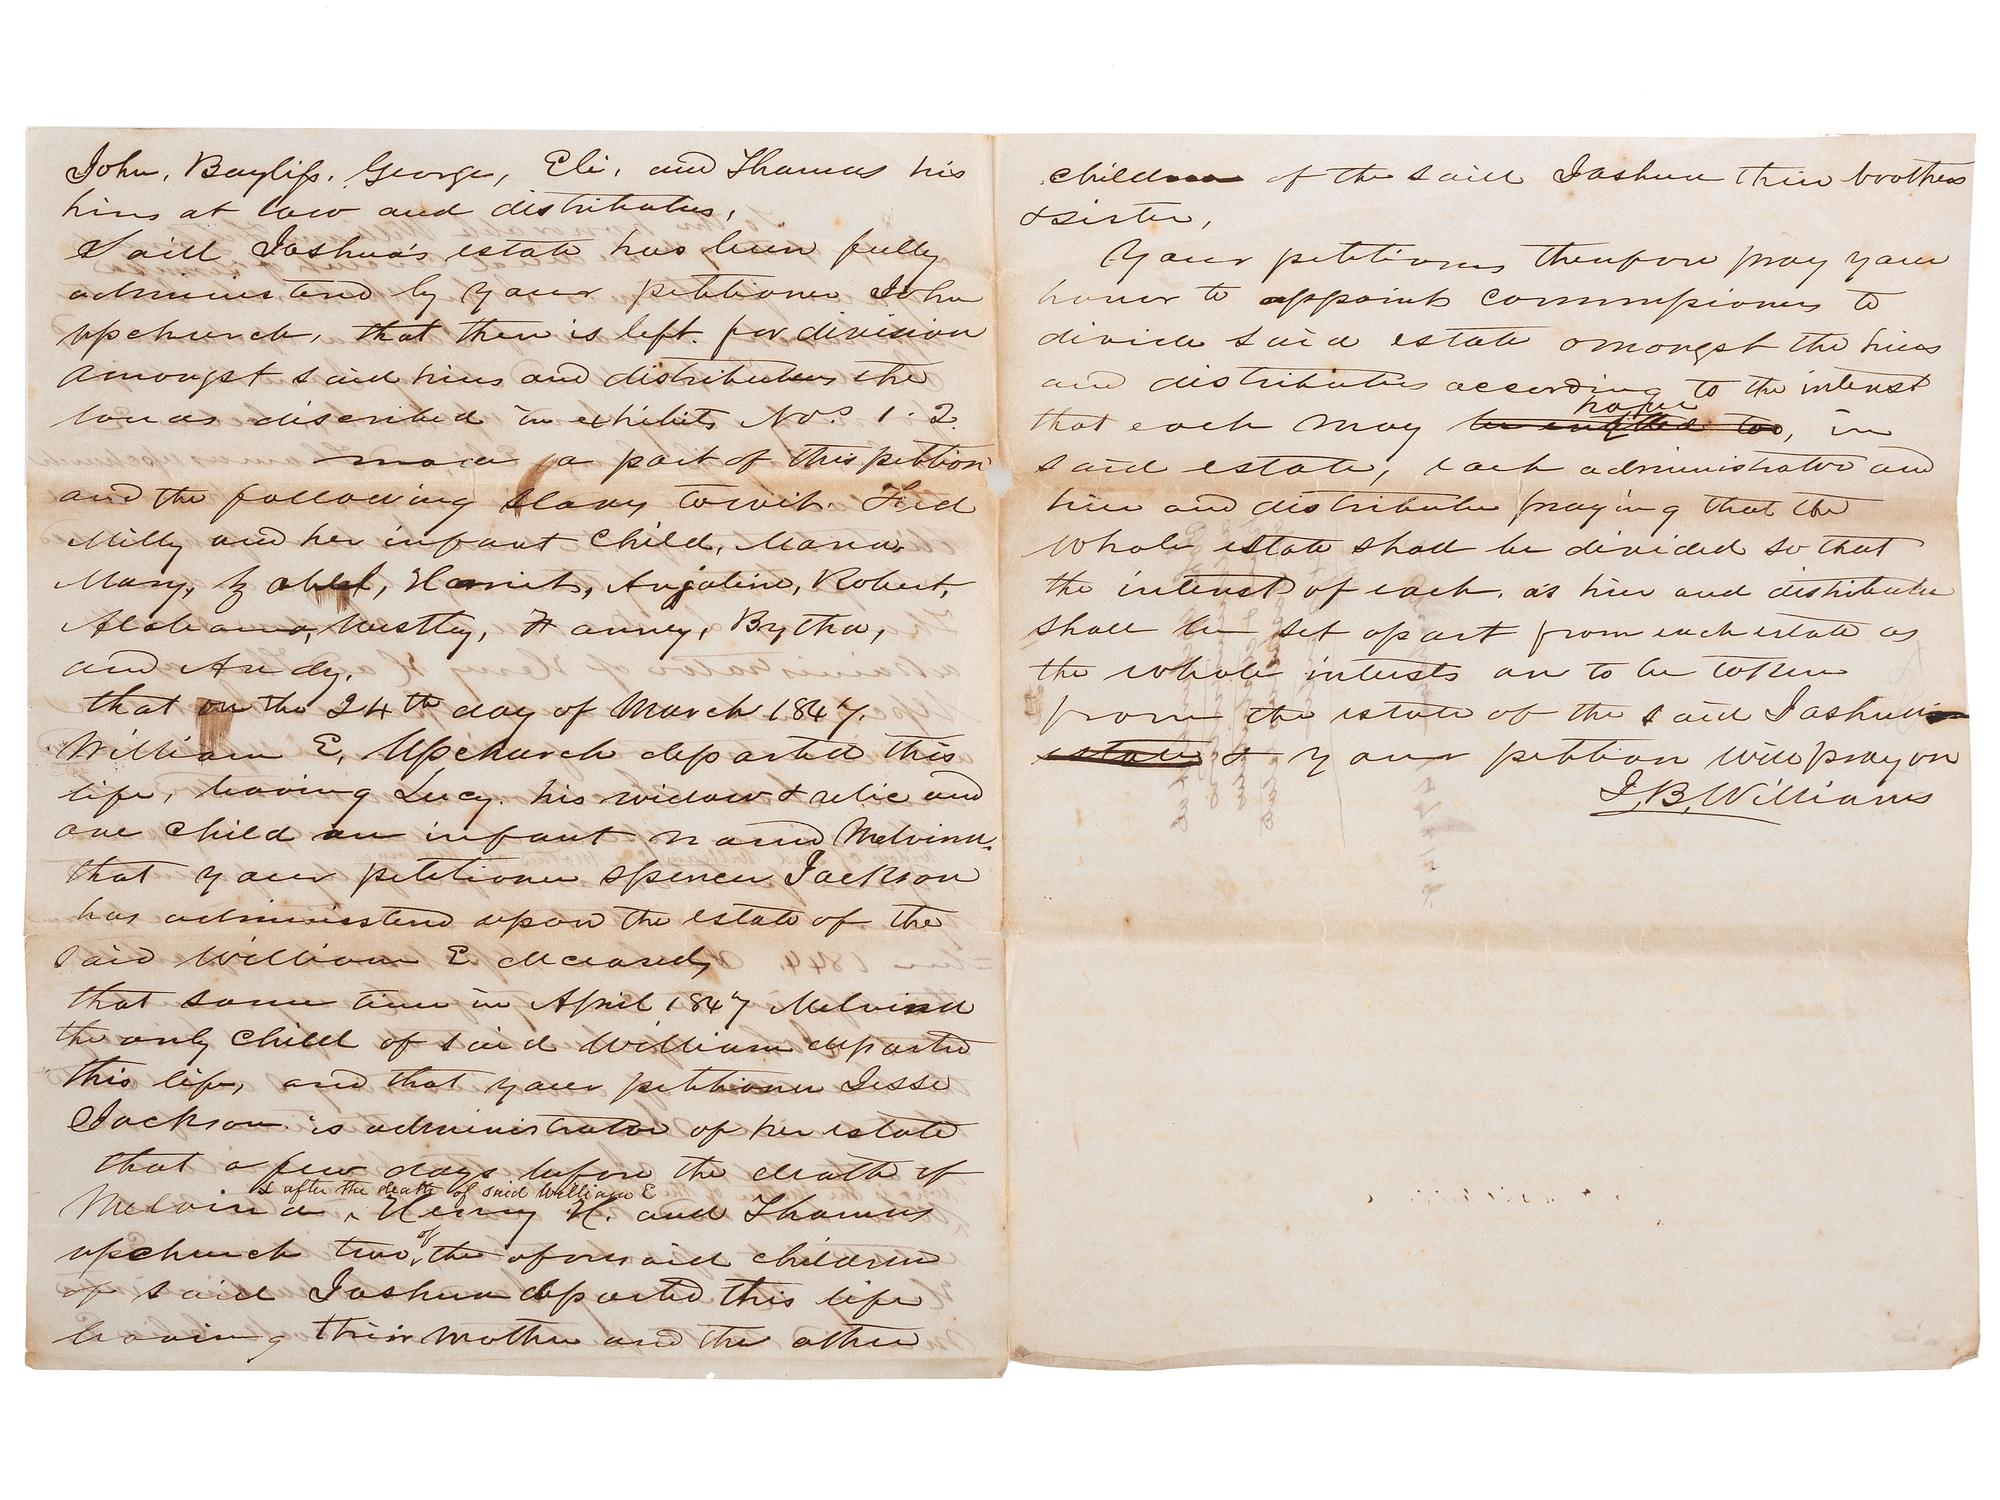 John, Bayliss, George, Eli, and Thomas his
heirs at law and distributees,
Said Joshua's estate has been fully
administered by your petitioner John
upchurch, that there is left for division
amongst said heirs and distributees the
described in exhibits Nos. 1. 2.
made a part of this petition
and the following slaves towit.
Milly and her infant child, Maria,
Mary, Harriet, Angeline, Robert,
Alabama, Westley, Fanney, Bytha,
and Andy.
that on the 24th day of March 1847.
William E. Upchurch departed this
life, leaving Lucy his widow & relic and
one child an infant named Melvina.
that your petitioner Spencer Jackson
has administered upon the estate of the
said William E deceased,
that some time in April 1847 Melvina
the only child of said William departed
this life, and that your petitioner Jesse
Jackson is administrator of her estate
that a few days before the death of
& after the death of said William E
Melvina, Henry H. and Thomas
upchurch two of the aforesaid children
of said Joshua departed this life
leaving their mother and the other
children of the said Joshua their brothers
& sister,
Your petitioners therefore pray your
honor to appoint commissioners to
divide said estate amongst the heirs
and distributees according to the interest
that each may have be entitled too, in
said estate, each administrator and
heir and distributee praying that the
whole estate shall be divided so that
the interest of each as heir and distributee
shall be set apart from each estate as
the whole interests are to be taken
from the estate of the said Joshua
estate & your petition will pray on
J, B, Williams